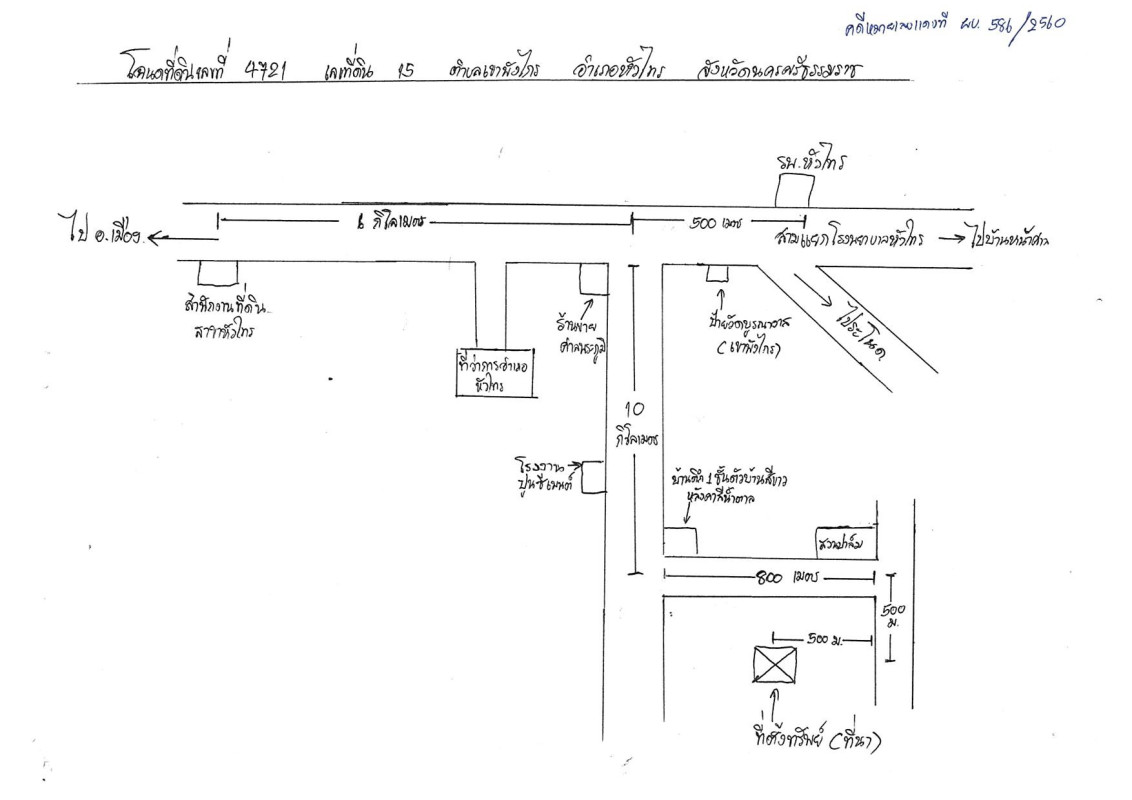 คดีหมายเลขแดงที่ ผบ. 586/2560
โฉนดที่ดินเลขที่ 4721 เลขที่ดิน 15 ตำบลเขาพังไกร อำเภอหัวไทร จังหวัดนครศรีธรรมราช
รพ.หัวไทร
ไป อ.เมือง
กิโลเมตร
500 เมตร
สามแยกโรงพยาบาลหัวไทร
ไปบ้านหน้าศาล
สำนักงานที่ดิน
สาขาหัวไทร
ร้านขาย
ศาลพระภูมิ
ป้ายวัดบูรณาวาส
(เขาพังไกร)
ไประโนด
ที่ว่าการอำเภอ
หัวไทร
10
กิโลเมตร
โรงงาน
ปูนซีเมนต์
บ้านตึก 1 ชั้นตัวบ้านสีขาว
หลังคาสีน้ำตาล
สวนปาล์ม
800 เมตร
500
ม.
500 ม.
ที่ตั้งทรัพย์ (ที่นา)